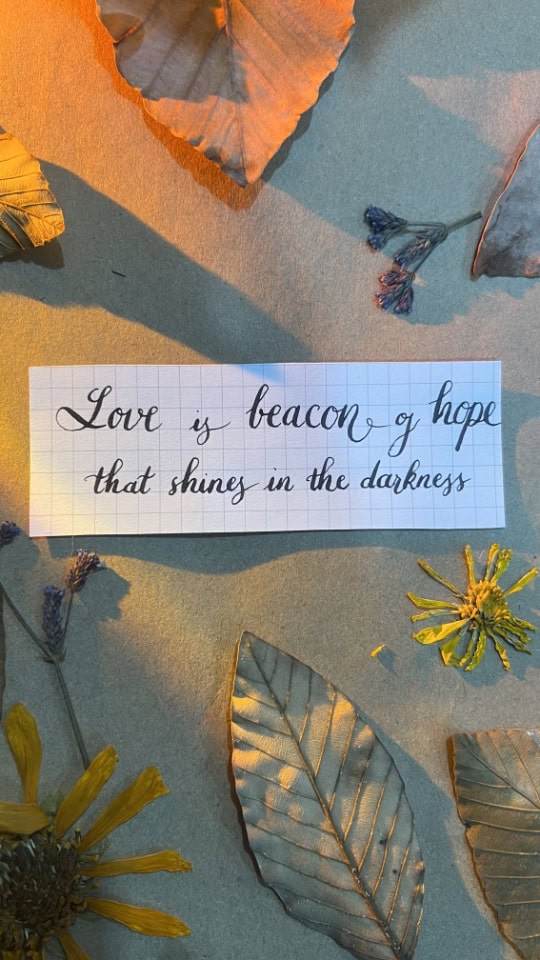 Love is beacon of hope
that shines in the darkness